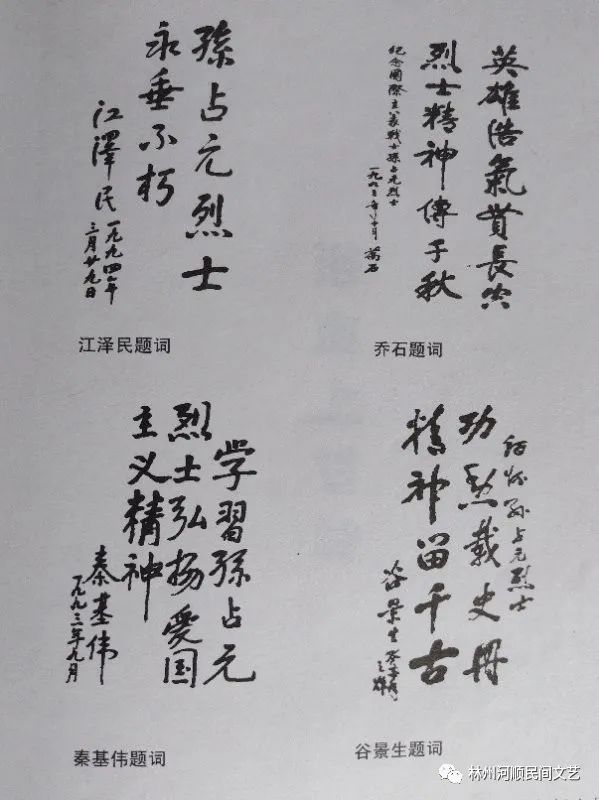 孫占元烈士
永垂不朽
江澤民
一九九四年
三月廿九日
江泽民题词
英雄浩氣貫長空
烈士精神傳千秋
紀念國際主義戰士孫占元烈士
乔石题词
学習孫占元
烈士弘扬愛国
主义精神
秦基伟
一九九三年九月
秦基伟题词
孙占元烈士
功勋載史冊
精神留千古
谷景生
谷景生题词
林州河顺民间文艺